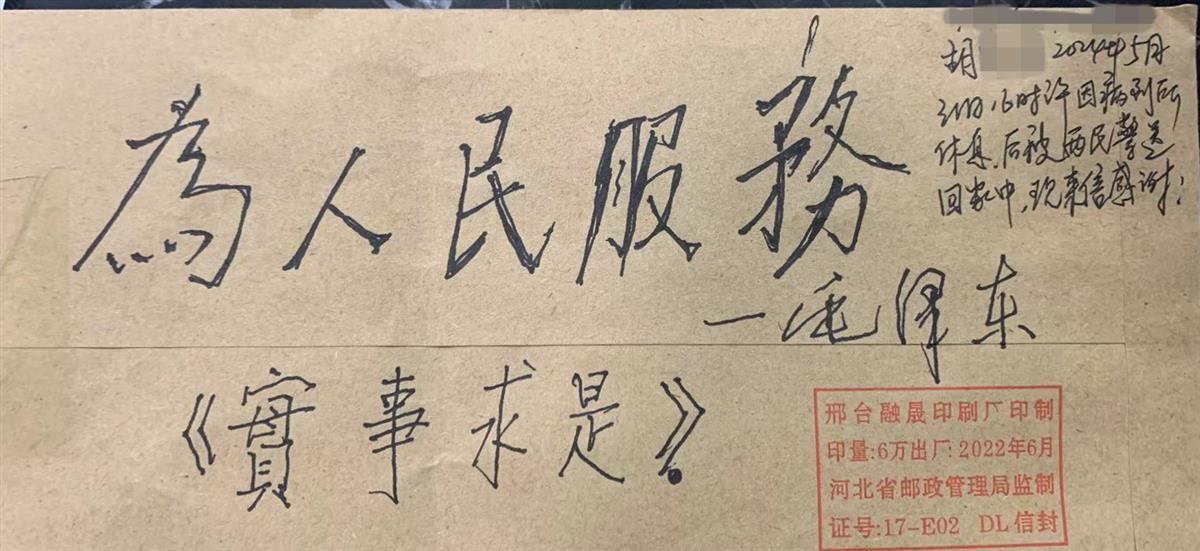 胡 2024年5月
31日16时许因病到所
休息,后被两民警送
回家中,现来信感谢!
為人民服務
一毛泽东
《實事求是》.
邢台融晟印刷厂印制
印量:6万出厂:2022年6月
河北省邮政管理局监制
证号:17-E02 DL信封